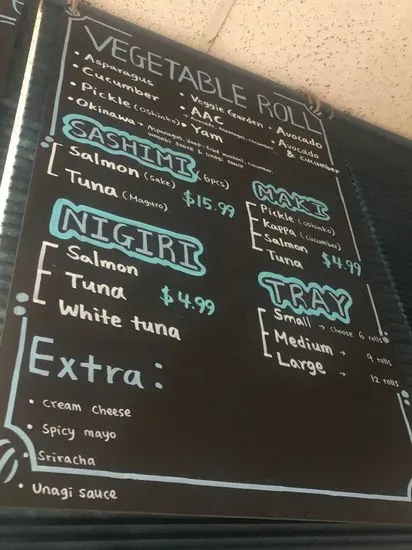 VEGETABLE ROLL
• Asparagus
• Cucumber
• Pickle (oshinko)
• Okinawa - Asparagus, deep-fried zucchini, cucumber,
wasabi sauce & unagi sauce
• Veggie Garden
• AAC
→ Avocado, Asparagus, cucumber
• Yam
• Avocado
• Avocado
& cucumber
SASHIMI (6pcs)
Salmon (sake)
Tuna (Maguro)
$15.99
MAKI
Pickle (oshinko)
Kappa (cucumber)
Salmon
Tuna
$4.99
NIGIRI
Salmon
Tuna
$4.99
White tuna
TRAY
Small → choose 6 rolls
Medium → 9 rolls
Large → 12 rolls
Extra:
• cream cheese
• Spicy mayo
• Sriracha
• Unagi sauce